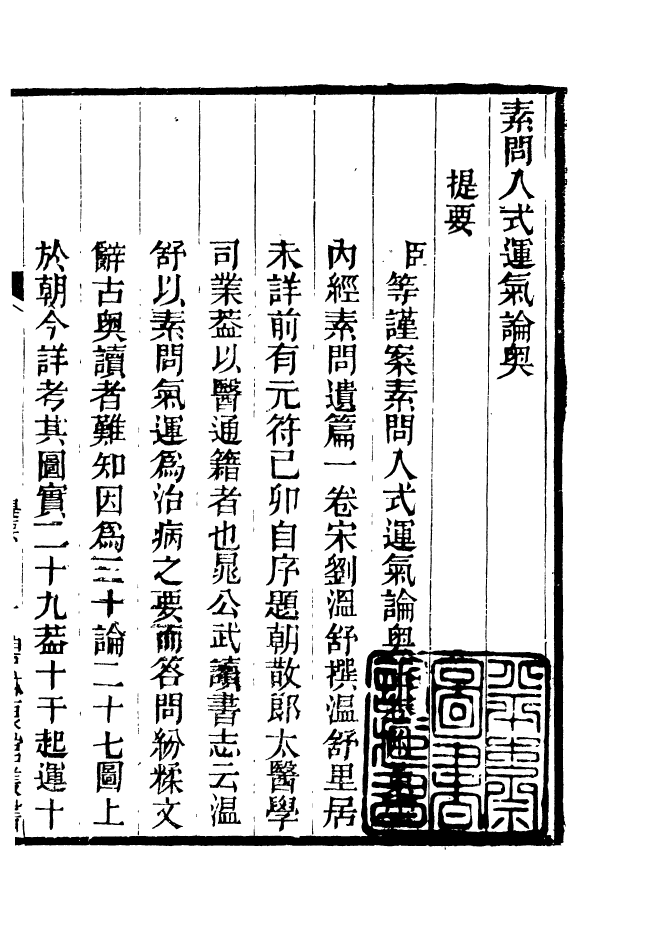 素問入式運氣論奥
提要
臣等謹案素問入式運氣論奥
內經素問遺篇一卷宋劉溫舒撰溫舒里居
未詳前有元符己卯自序題朝散郎太醫學
司業葢以醫通籍者也晁公武讀書志云溫
舒以素問氣運爲治病之要而答問紛糅文
辭古奥讀者難知因爲三十論二十七圖上
於朝今詳考其圖實二十九葢十干起運十